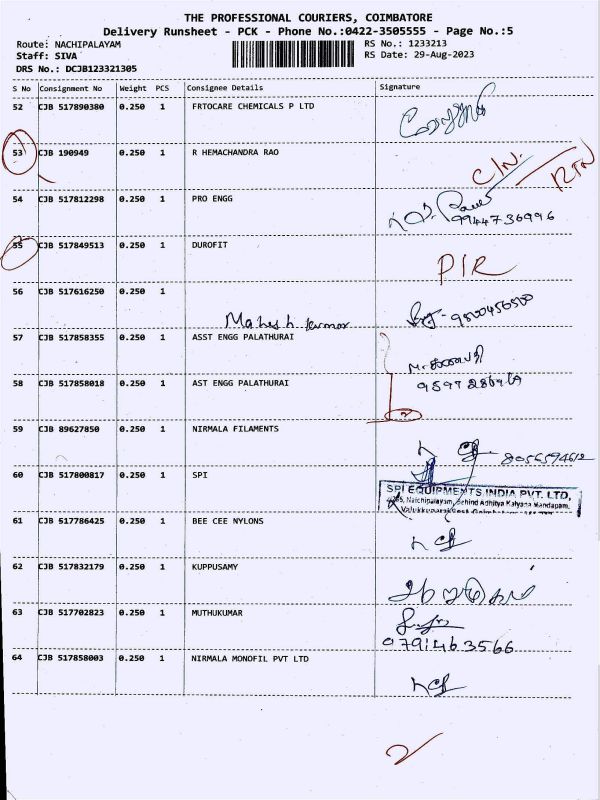 THE PROFESSIONAL COURIERS, COIMBATORE
Delivery Runsheet - PCK - Phone No.:0422-3505555 - Page No.:5
Route: NACHIPALAYAM RS No.: 1233213
Staff: SIVA RS Date: 29-Aug-2023
DRS No.: DCJB123321305
S No Consignment No Weight PCS Consignee Details Signature
52 CJB 517890380 0.250 1 FRTOCARE CHEMICALS P LTD
53 CJB 190949 0.250 1 R HEMACHANDRA RAO C/N. RTN
54 CJB 517812298 0.250 1 PRO ENGG
9944736996
55 CJB 517849513 0.250 1 DUROFIT P/R
56 CJB 517616250 0.250 1
Mahesh kumar 9500456500
57 CJB 517858355 0.250 1 ASST ENGG PALATHURAI
58 CJB 517858018 0.250 1 AST ENGG PALATHURAI
2
59 CJB 89627850 0.250 1 NIRMALA FILAMENTS
8056594612
60 CJB 517800817 0.250 1 SPI
SPI EQUIPMENTS INDIA PVT. LTD,
Naichipalayam, Behind Adhitya Kalyana Mandapam,
61 CJB 517786425 0.250 1 BEE CEE NYLONS
62 CJB 517832179 0.250 1 KUPPUSAMY
63 CJB 517702823 0.250 1 MUTHUKUMAR
0791463566
64 CJB 517858003 0.250 1 NIRMALA MONOFIL PVT LTD
2